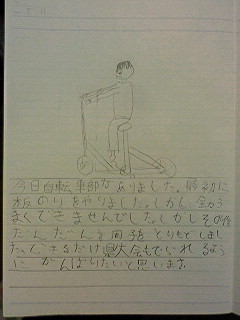 今日自転車部がありました。最初に
板のりをやりました。しかし、全うう
まくできませんでした。しかしその後
だんだんと調子をとりもどしまし
た。できるだけ県大会もでいれるよう
に がんばりたいと思います。